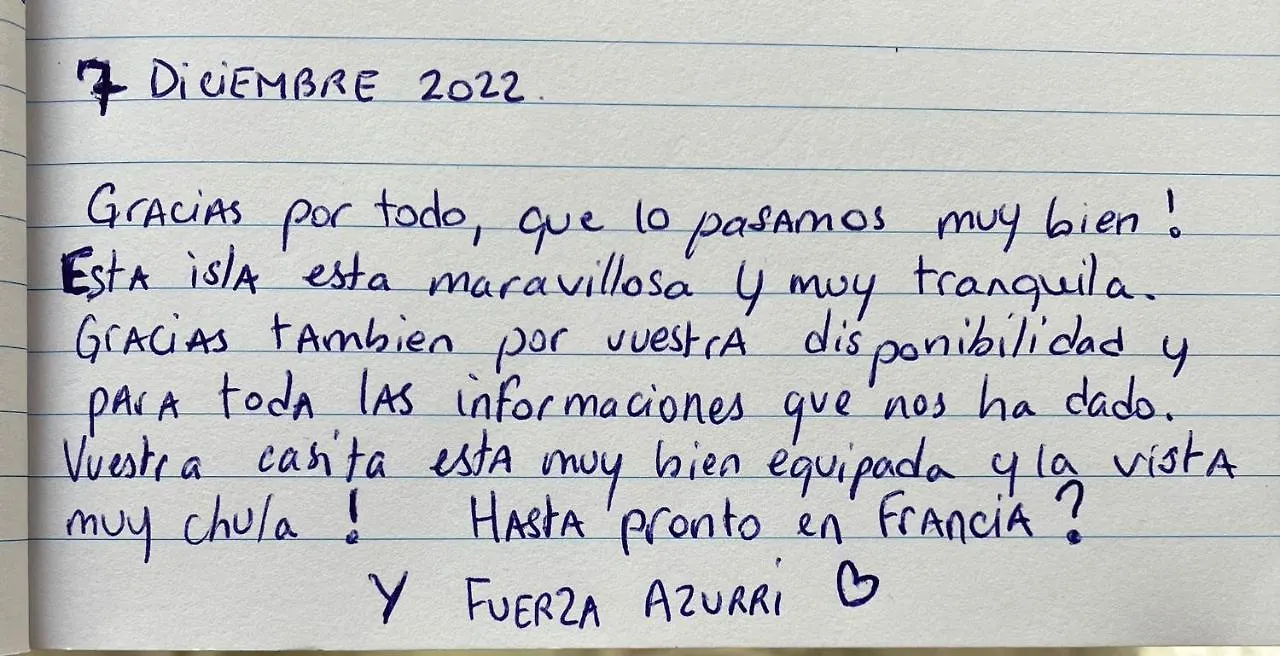 7 DiCiEMBRE 2022.
GrACiAS por todo, que lo pasAmos muy bien !
EstA islA esta maravillosa y muy tranquila.
GrACiAS tAmbien por vuestrA disponibilidad y
pArA todA lAS informaciones que nos ha dado.
Vuestra casita estA muy bien equipada y la vistA
muy chula ! HAStA pronto en FrAnciA ?
Y FUERZA AZURRi ♡